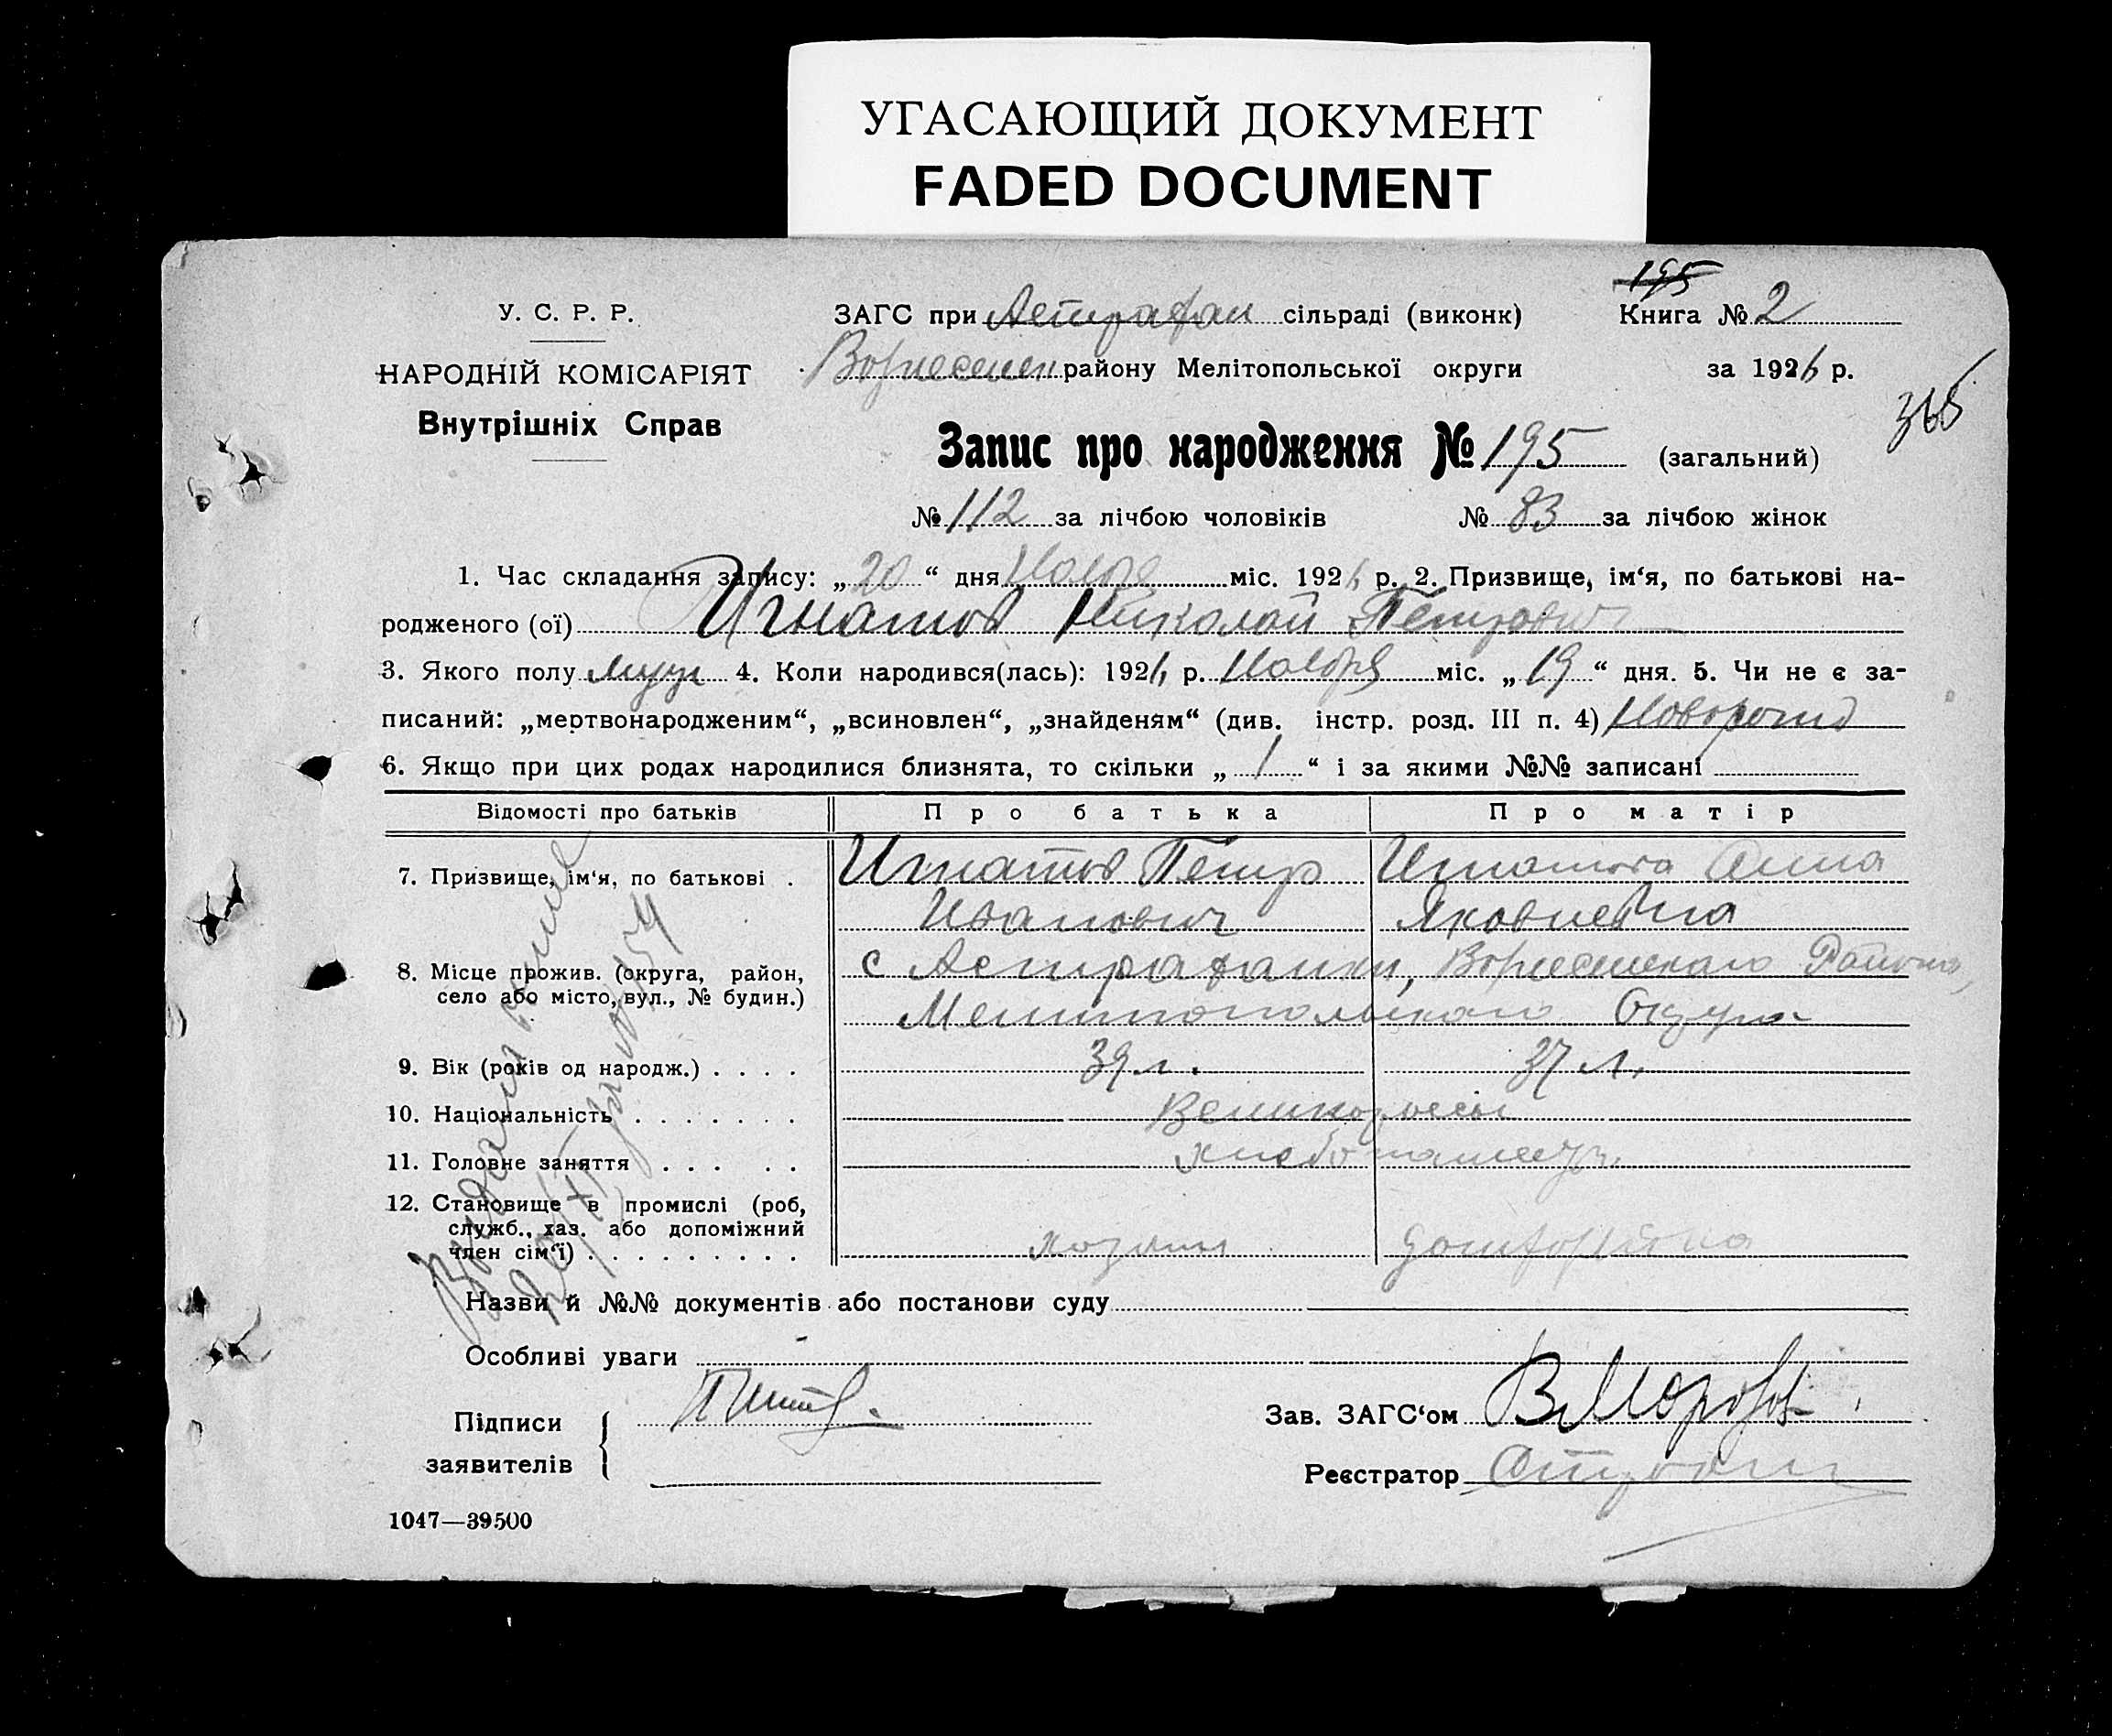 УГАСАЮЩИЙ ДОКУМЕНТ
FADED DOCUMENT
У. С. Р. Р.
НАРОДНІЙ КОМІСАРІЯТ
Внутрішніх Справ
195
ЗАГС при Астрахан сільраді (виконк) Книга № 2
Вознесенск району Мелітопольської округи за 1926 р.
365
Запис про народження № 195 (загальний)
№ 112 за лічбою чоловіків № 83 за лічбою жінок
1. Час складання запису: „ 20 “ дня Ноября міс. 1926 р. 2. Призвище, ім‘я, по батькові на-
родженого (ої) Игнатов Николай Петрович
3. Якого полу муж 4. Коли народився(лась): 1926 р. Ноября міс. „ 19 “ дня. 5. Чи не є за-
писаний: „мертвонародженим“, „всиновлен“, „знайденям“ (див. інстр. розд. III п. 4) Новорожд
6. Якщо при цих родах народилися близнята, то скільки „ 1 “ і за якими №№ записані
Відомості про батьків Про батька Про матір
7. Призвище, ім‘я, по батькові . Игнатов Петр Игнатова Анна
Иванович Яковлевна
8. Місце прожив. (округа, район, с Астраханки, Вознесенскаго Района,
село або місто, вул., № будин.) Мелитопольскаго Округа
9. Вік (років од народж.) . . . . 39 л. 37 л.
10. Національність . . . . . . . Великороссы
11. Головне заняття . . . . . хлебопашеср.
12. Становище в промислі (роб,
служб., хаз. або допоміжний
член сім‘ї) . . . . . . . . . . хозяин домхозяйка
Назви й №№ документів або постанови суду
Особливі уваги
Підписи
заявителів
Зав. ЗАГС‘ом В Морозов
Реєстратор
1047—39500